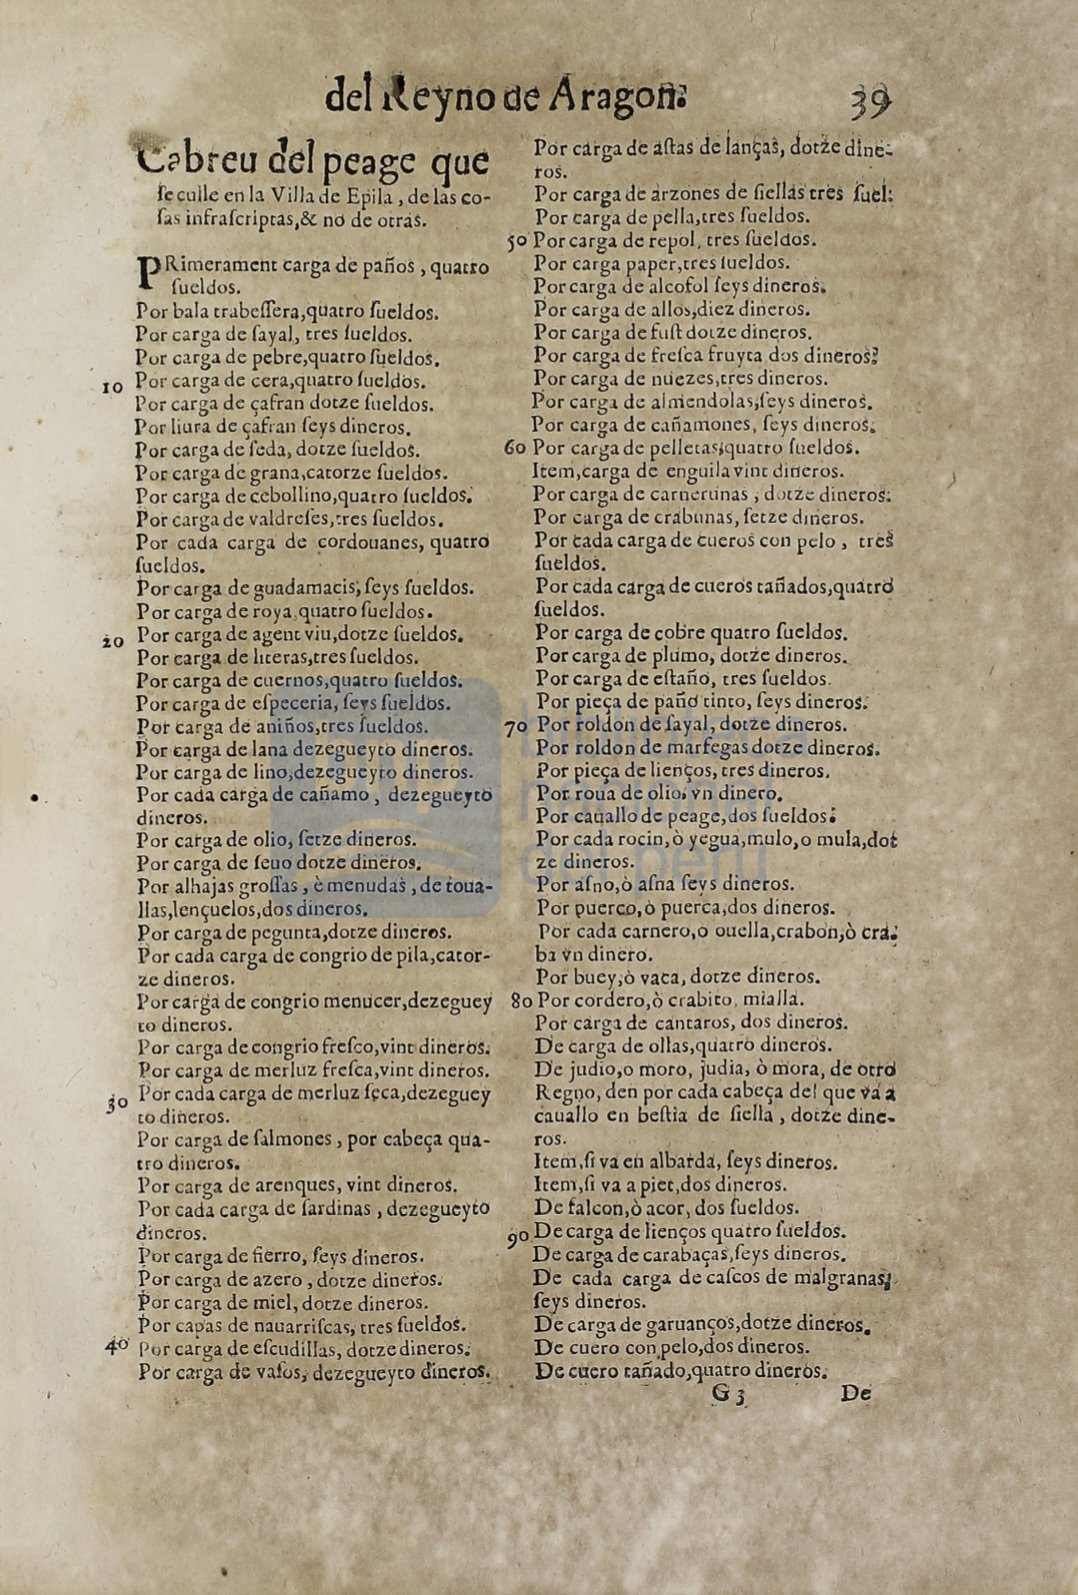 del Reyno de Aragon.
39
Cabreu del peage que
ſe cuille en la Villa de Epila, de las co-
ſas infraſcriptas,& no de otras.
PRimerament carga de paños, quatro
ſueldos.
Por bala trabeſſera,quatro ſueldos.
Por carga de ſayal, tres ſueldos.
Por carga de pebre,quatro ſueldos.
10 Por carga de cera,quatro ſueldos.
Por carga de çafran dotze ſueldos.
Por liura de çafran ſeys dineros.
Por carga de ſeda, dotze ſueldos.
Por carga de grana,catorze ſueldos.
Por carga de cebollino,quatro ſueldos.
Por carga de valdreſes,tres ſueldos.
Por cada carga de cordouanes, quatro
ſueldos.
Por carga de guadamacis, ſeys ſueldos.
Por carga de roya,quatro ſueldos.
20 Por carga de agent viu,dotze ſueldos.
Por carga de literas,tres ſueldos.
Por carga de cuernos,quatro ſueldos.
Por carga de eſpeceria, ſeys ſueldos.
Por carga de aniños,tres ſueldos.
Por carga de lana dezegueyto dineros.
Por carga de lino,dezegueyto dineros.
Por cada carga de cañamo, dezegueyto
dineros.
Por carga de olio, ſetze dineros.
Por carga de ſeuo dotze dineros.
Por alhajas groſſas, è menudas, de toua-
llas,lençuelos,dos dineros.
Por carga de pegunta,dotze dineros.
Por cada carga de congrio de pila,cator-
ze dineros.
Por carga de congrio menucer,dezeguey
to dineros.
Por carga de congrio freſco,vint dineros.
Por carga de merluz freſca,vint dineros.
30 Por cada carga de merluz ſeca,dezeguey
to dineros.
Por carga de ſalmones, por cabeça qua-
tro dineros.
Por carga de arenques, vint dineros.
Por cada carga de ſardinas, dezegueyto
dineros.
Por carga de fierro, ſeys dineros.
Por carga de azero, dotze dineros.
Por carga de miel, dotze dineros.
Por capas de nauarriſcas, tres ſueldos.
40 Por carga de eſcudillas, dotze dineros.
Por carga de vaſos, dezegueyto dineros.
Por carga de aſtas de lanças, dotze dine-
ros.
Por carga de arzones de ſiellas tres ſuel.
Por carga de pella,tres ſueldos.
50 Por carga de repol, tres ſueldos.
Por carga paper,tres ſueldos.
Por carga de alcofol ſeys dineros.
Por carga de allos,diez dineros.
Por carga de fuſt dotze dineros.
Por carga de freſca fruyta dos dineros.
Por carga de nuezes,tres dineros.
Por carga de almendolas,ſeys dineros.
Por carga de cañamones, ſeys dineros.
60 Por carga de pelletas,quatro ſueldos.
Item,carga de enguila vint dineros.
Por carga de carnerunas, dotze dineros.
Por carga de crabunas, ſetze dineros.
Por cada carga de cueros con pelo, tres
ſueldos.
Por cada carga de cueros tañados,quatro
ſueldos.
Por carga de cobre quatro ſueldos.
Por carga de plumo, dotze dineros.
Por carga de eſtaño, tres ſueldos.
Por pieça de paño tinto, ſeys dineros.
70 Por roldon de ſayal, dotze dineros.
Por roldon de marfegas dotze dineros.
Por pieça de lienços, tres dineros.
Por roua de olio, vn dinero.
Por cauallo de peage,dos ſueldos.
Por cada rocin,ò yegua,mulo,o mula,dot
ze dineros.
Por aſno,ò aſna ſeys dineros.
Por puerco,ò puerca,dos dineros.
Por cada carnero,o ouella,crabon,ò cra-
ba vn dinero.
Por buey,ò vaca, dotze dineros.
80 Por cordero,ò crabito, mialla.
Por carga de cantaros, dos dineros.
De carga de ollas,quatro dineros.
De judio,o moro, judia, ò mora, de otro
Regno, den por cada cabeça del que va a
cauallo en beſtia de ſiella, dotze dine-
ros.
Item,ſi va en albarda, ſeys dineros.
Item,ſi va a piet,dos dineros.
De falcon,ò acor, dos ſueldos.
90 De carga de lienços quatro ſueldos.
De carga de carabaças,ſeys dineros.
De cada carga de caſcos de malgranas,
ſeys dineros.
De carga de garuanços,dotze dineros.
De cuero con pelo,dos dineros.
De cuero tañado,quatro dineros.
G 3 De